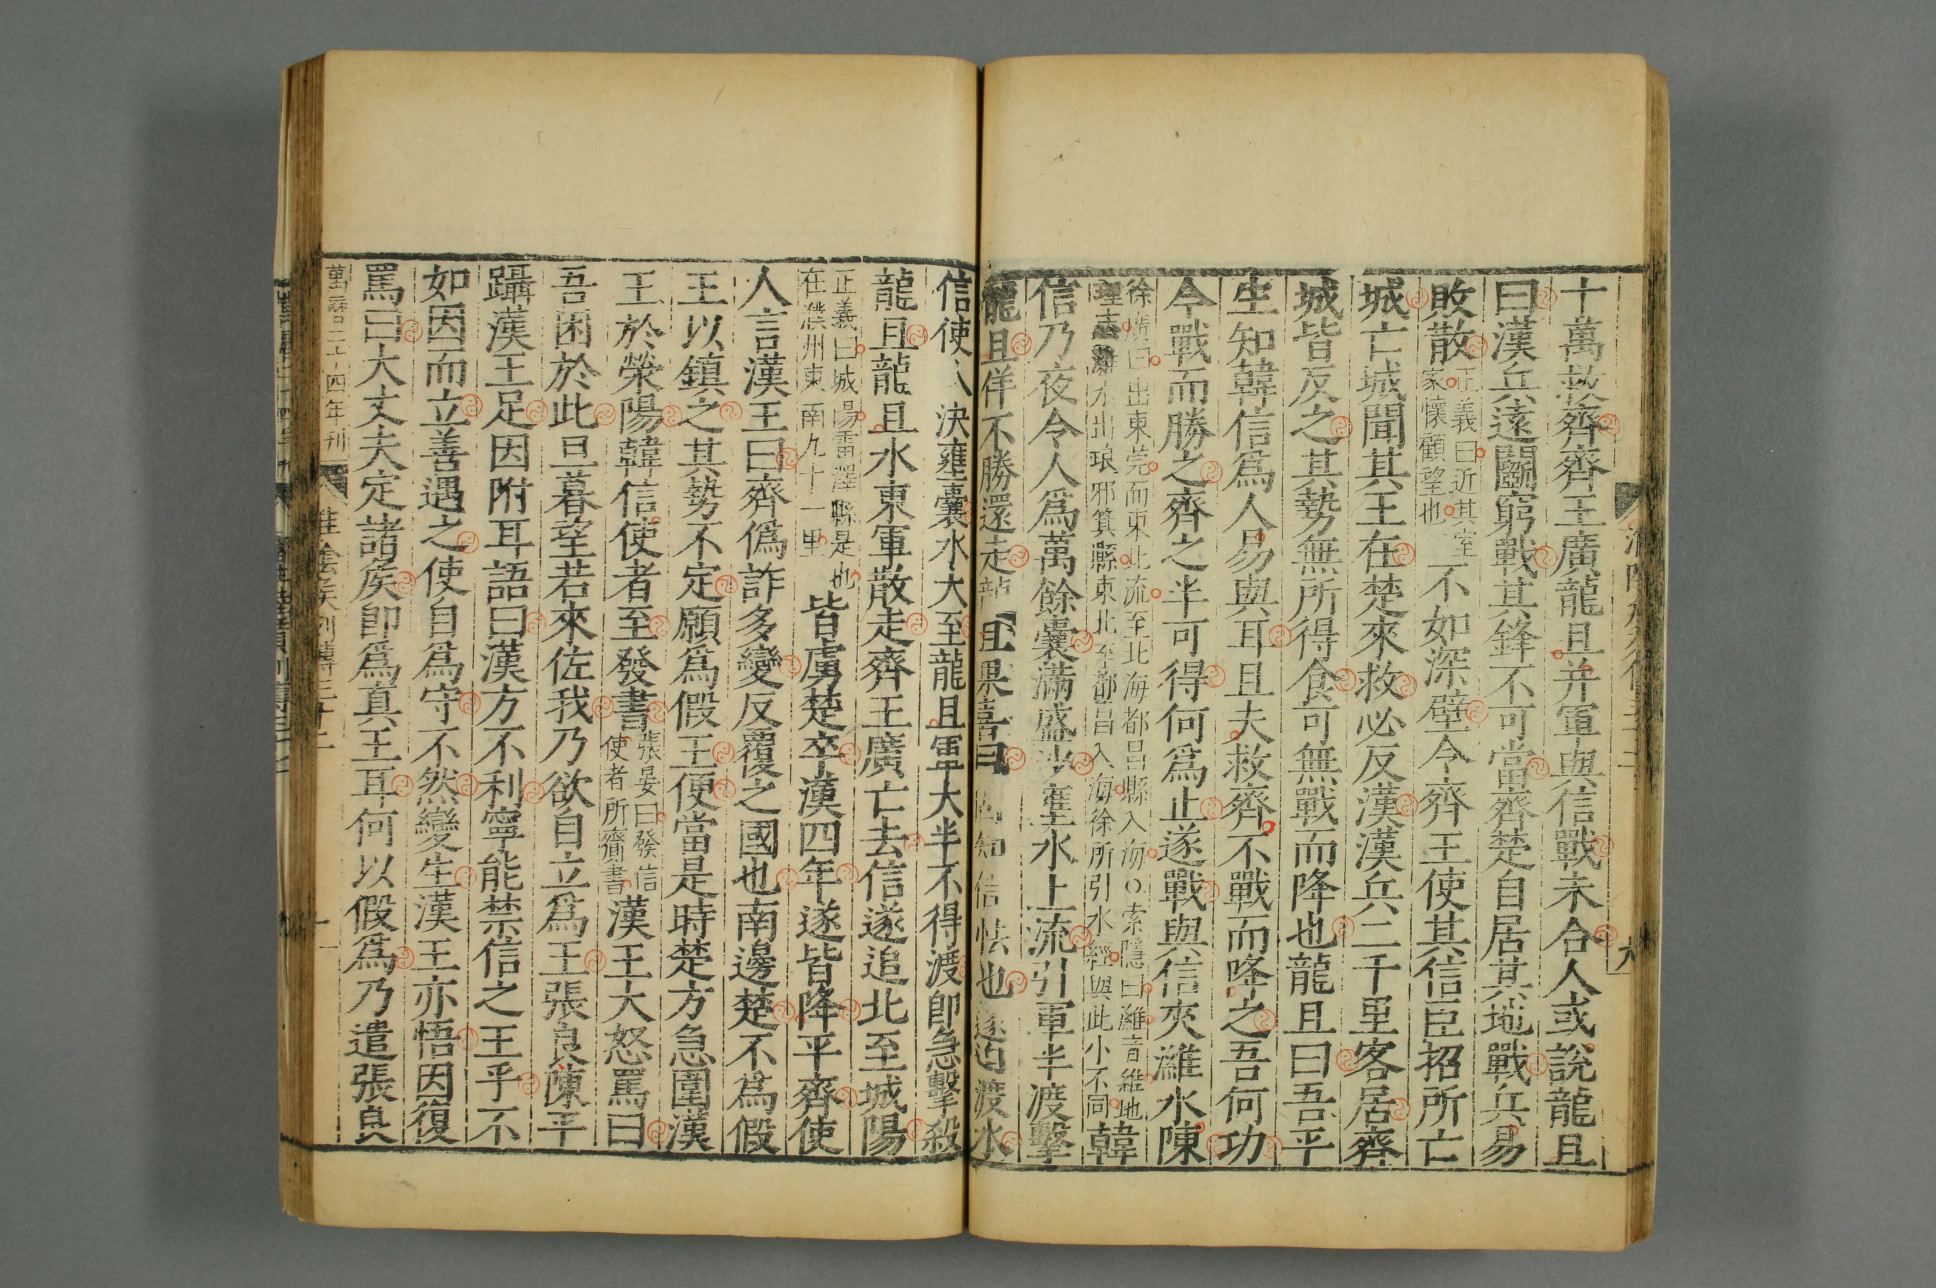 十萬救齊齊王廣龍且并軍與信戰未合人或說龍且
曰漢兵遠鬬窮戰其鋒不可當齊楚自居其地戰兵易
敗散正義曰近其室家懷顧望也不如深壁令齊王使其信臣招所亡
城亡城聞其王在楚來救必反漢漢兵二千里客居齊
城皆反之其勢無所得食可無戰而降也龍且曰吾平
生知韓信爲人易與耳且夫救齊不戰而降之吾何功
今戰而勝之齊之半可得何爲止遂戰與信夾濰水陳
徐廣曰出東莞而東北流至北海都昌縣入海○索隱曰濰音維地理志濰水出琅邪箕縣東北至都昌入海徐所引水經與此小不同韓
信乃夜令人爲萬餘囊滿盛沙壅水上流引軍半渡擊
龍且佯不勝還走龍且果喜曰固知信怯也遂追渡水
信使人決壅囊水大至龍且軍大半不得渡卽急擊殺
龍且龍且水東軍散走齊王廣亡去信遂追北至城陽
正義曰城陽雷澤縣是也在濮州東南九十一里皆虜楚卒漢四年遂皆降平齊使
人言漢王曰齊僞詐多變反覆之國也南邊楚不爲假
王以鎮之其勢不定願爲假王便當是時楚方急圍漢
王於滎陽韓信使者至發書張晏曰發信使者所齎書漢王大怒罵曰
吾困於此旦暮望若來佐我乃欲自立爲王張良陳平
躡漢王足因附耳語曰漢方不利寧能禁信之王乎不
如因而立善遇之使自爲守不然變生漢王亦悟因復
罵曰大丈夫定諸矦卽爲真王耳何以假爲乃遣張良
萬曆二十四年刊 淮陰矦列傳三十二 十一